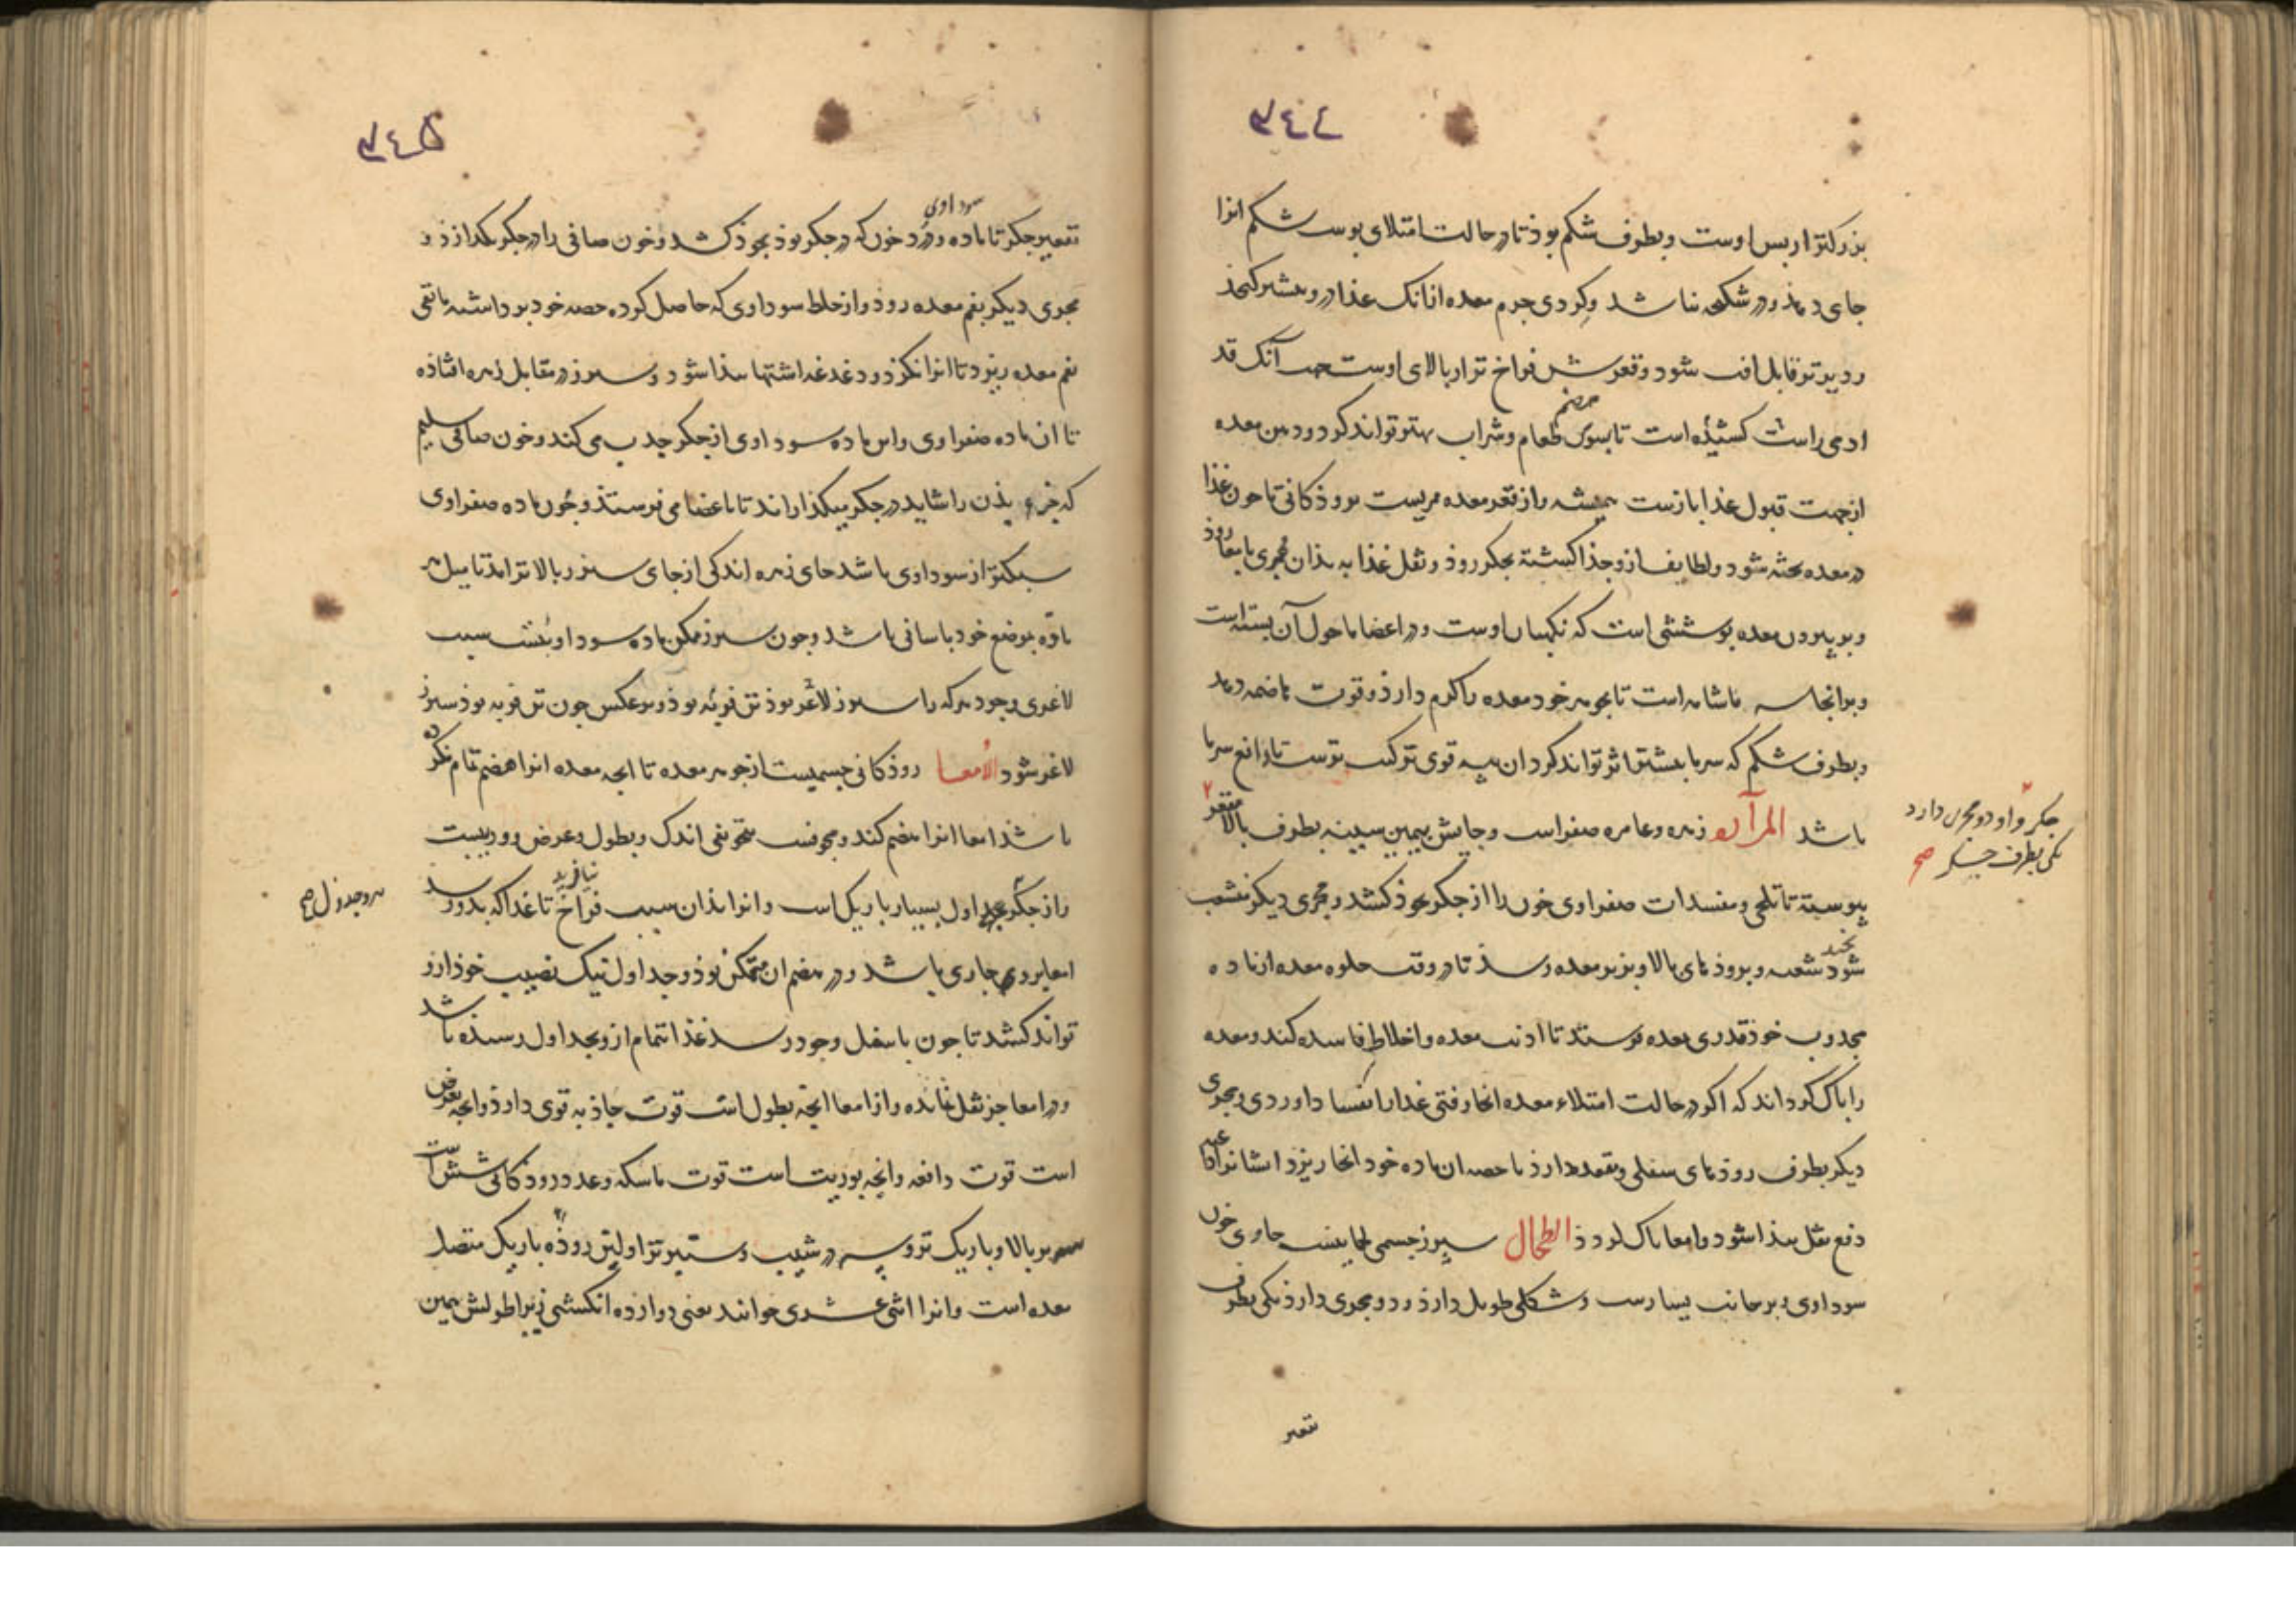 ٣٤٤
بزرکتر از بس اوست وبطرف شکم بوذ تا در حالت امتلای پوست شکم انرا
جای دهذ ودر شکنجه نباشد وکردی جرم معده تا غذا درو بیشتر کنجذ
ودیرتر قابل افت شود وقعرش فراخ تر از بالای اوست آنک قد
ادمی راست کشیذه است تا بسوی طعام وشراب بهتر تواند کرد ودهن معده
هضم
از جهت قبول غذا بازست همیشه واز قعر معده ممریست بروذکانی تا چون غذا
در معده پخته شود ولطایف ازو جذا کشته بجکر روذ وثفل غذا به بذان مجری بامعا روذ
وبر بیرون معده پوششی است که نکهبان اوست ودر اعضا ما حول آن بسته است
وبر انجا است تا بجوهر خود معده را کرم دارذ وقوت هاضمه دهد
وبطرف شکم که سرما بیشتر اثر تواند کرد ان پیه قوی ترکیب ترست تا دافع سرما
باشد المرآره زهره وعا مره صفراست وجایش بیمین سینه بطرف بالا مقعر
جکر واو دو مجری دارد
یکی بطرف جکر صح
پیوسته تا تلخی ومفسدات صفراوی خون را از جکر بخوذ کشد ومجری دیکر منشعب
شود شعبه وبروذهای بالا وبزیر معده رسذ تا در وقت خلوه معده از ماده
مجذوب خوذ قدری بمعده فرستد تا اذیت معده واخلاط فاسده کند ومعده
را پاک کرداند که اکر در حالت امتلاء معده انجا رفتی غذا را بفساد اوردی ومجری
دیکر بطرف روذهای سفلی ومقعد دارذ تا حصه ان ماده خود انجا ریزد
دفع ثفل بیذا شود وامعا پاک کردذ الطحال سپرز جسمی لحا نیست حاوی خون
سوداوی وبر جانب یسارست وشکلی طویل دارذ ودو مجری دارذ یکی بطرف
تقعیر
٣٤٥
سوداوی
تقعیر جکر تا ماده ودرد خون که در جکر بوذ بخوذ کشد وخون صافی را در جکر بکذارذ و
مجری دیکر بفم معده روذ واز خلط سوداوی که حاصل کرده حصه خود برداشته ما بقی
بفم معده ریزد تا انرا بکزد ودغدغه اشتها بیذا شود وسپرز در مقابل زهره افتاذه
تا ان ماده صفراوی واین ماده سوداوی از جکر جذب می کند وخون صافی سلیم
که جزء بذن را شاید در جکر میکذاراند تا باعضا می فرستذ وچون ماده صفراوی
سبکتر از سوداوی باشد جای زهره اندکی از جای سپرز بالاتر امد تا میل هر
ماده بموضع خود باسانی باشد وچون سپرز مکن ماده سوداوست سبب
لاغری وجود هرکه را سپرز لاغر بوذ تن فربه بوذ وبرعکس چون تن فربه بوذ سپرز
لاغر شود الامعا روذکانی جسمیست از جوهر معده تا انچه معده انرا هضم تمام نکرده
باشذ امعا انرا هضم کند ومجوفست بتجویفی اندک وبطول وعرض رودیست
واز جکر جداول بسیار باریک است وانرا بذان سبب فراخ نیافرید تا غذا که بدو رسد
هر دو جدول صح
امعا بروی جاری باشد ودر هضم ان متمکن بوذ وجداول نیک نصیب خوذ ازو
تواند کشد تا چون باسفل وجود رسد غذا تمام ازو بجداول رسیذه باشد
ودر امعا جز ثفل نمانده واز امعا انچه بطول است قوت جاذبه قوی دارذ وانچه بعرض
است قوت دافعه وانچه بوریب است قوت ماسکه وعدد روذکانی شش است
سه بر بالا وباریک تر وسه در شیب وستبرتر اولین روذه باریک متصل
معده است وانرا اثنی عشری خوانند یعنی دوازده انکشتی زیرا طولش بهین